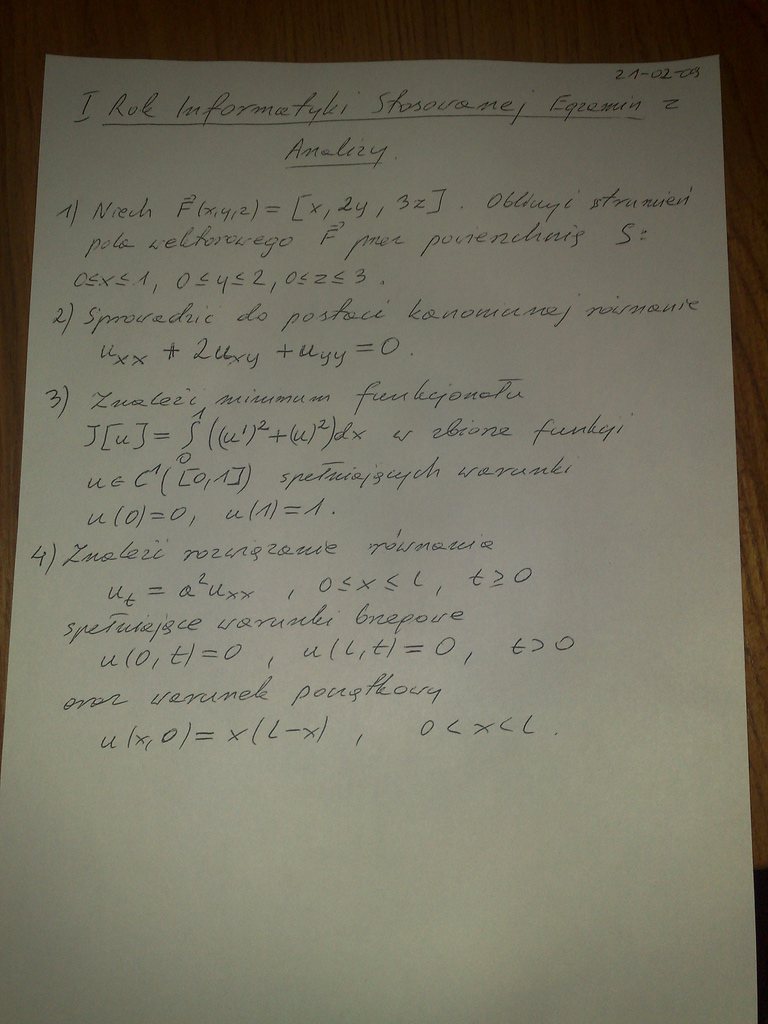 21-02-09
I Rok Informatyki Stosowanej Egzamin z
Analizy.
1) Niech F⃗(x,y,z) = [x, 2y, 3z]. Obliczyć strumień
pola wektorowego F⃗ przez powierzchnię S:
0≤x≤1, 0≤y≤2, 0≤z≤3.
2) Sprowadzić do postaci kanonicznej równanie
u_xx + 2u_xy + u_yy = 0.
3) Znaleźć minimum funkcjonału
J[u] = ∫₀¹ ((u')² + (u)²)dx w zbiorze funkcji
u ∈ C¹([0,1]) spełniających warunki
u(0)=0, u(1)=1.
4) Znaleźć rozwiązanie równania
u_t = a²u_xx , 0≤x≤L, t≥0
spełniające warunki brzegowe
u(0,t)=0 , u(L,t)=0, t>0
oraz warunek początkowy
u(x,0)= x(L-x) , 0<x<L.